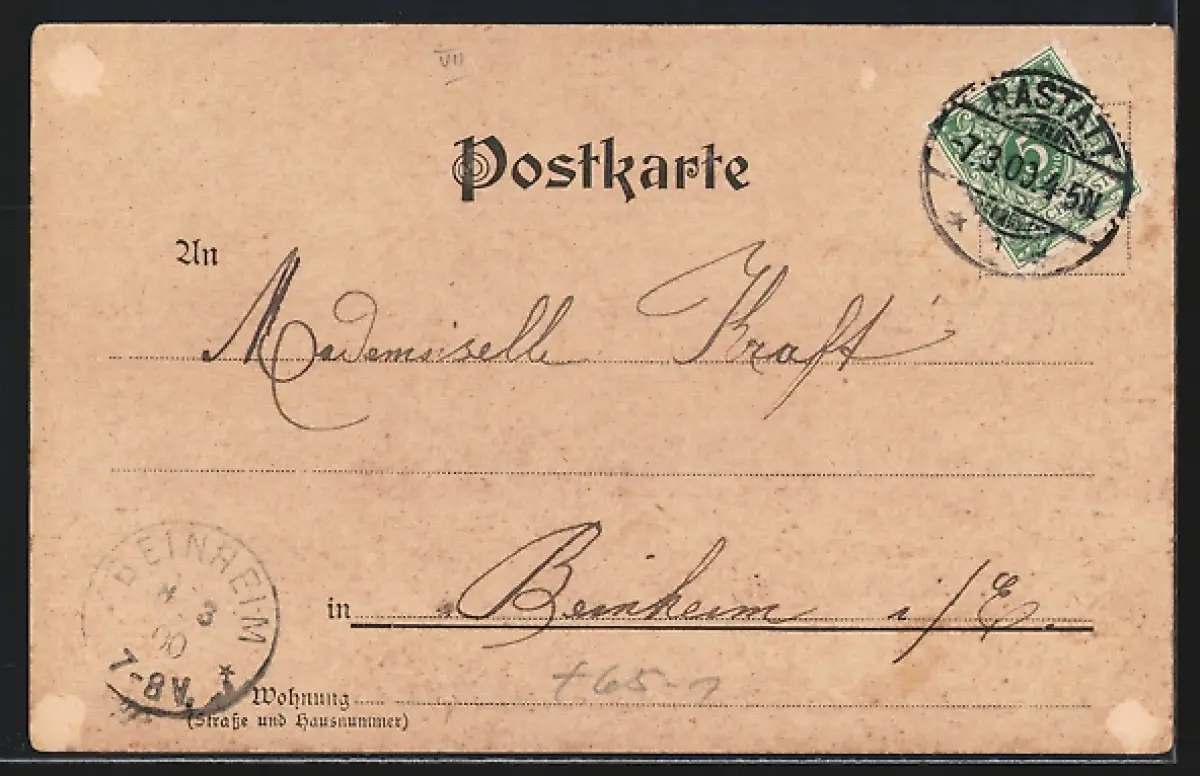 VII
Postkarte
RASTATT
-7.3.00.4-5N.
1
5
An
Mademoiselle Kraft
in Beinheim i/E.
BEINHEIM
3
00
7-8V.
Wohnung
(Straße und Hausnummer)